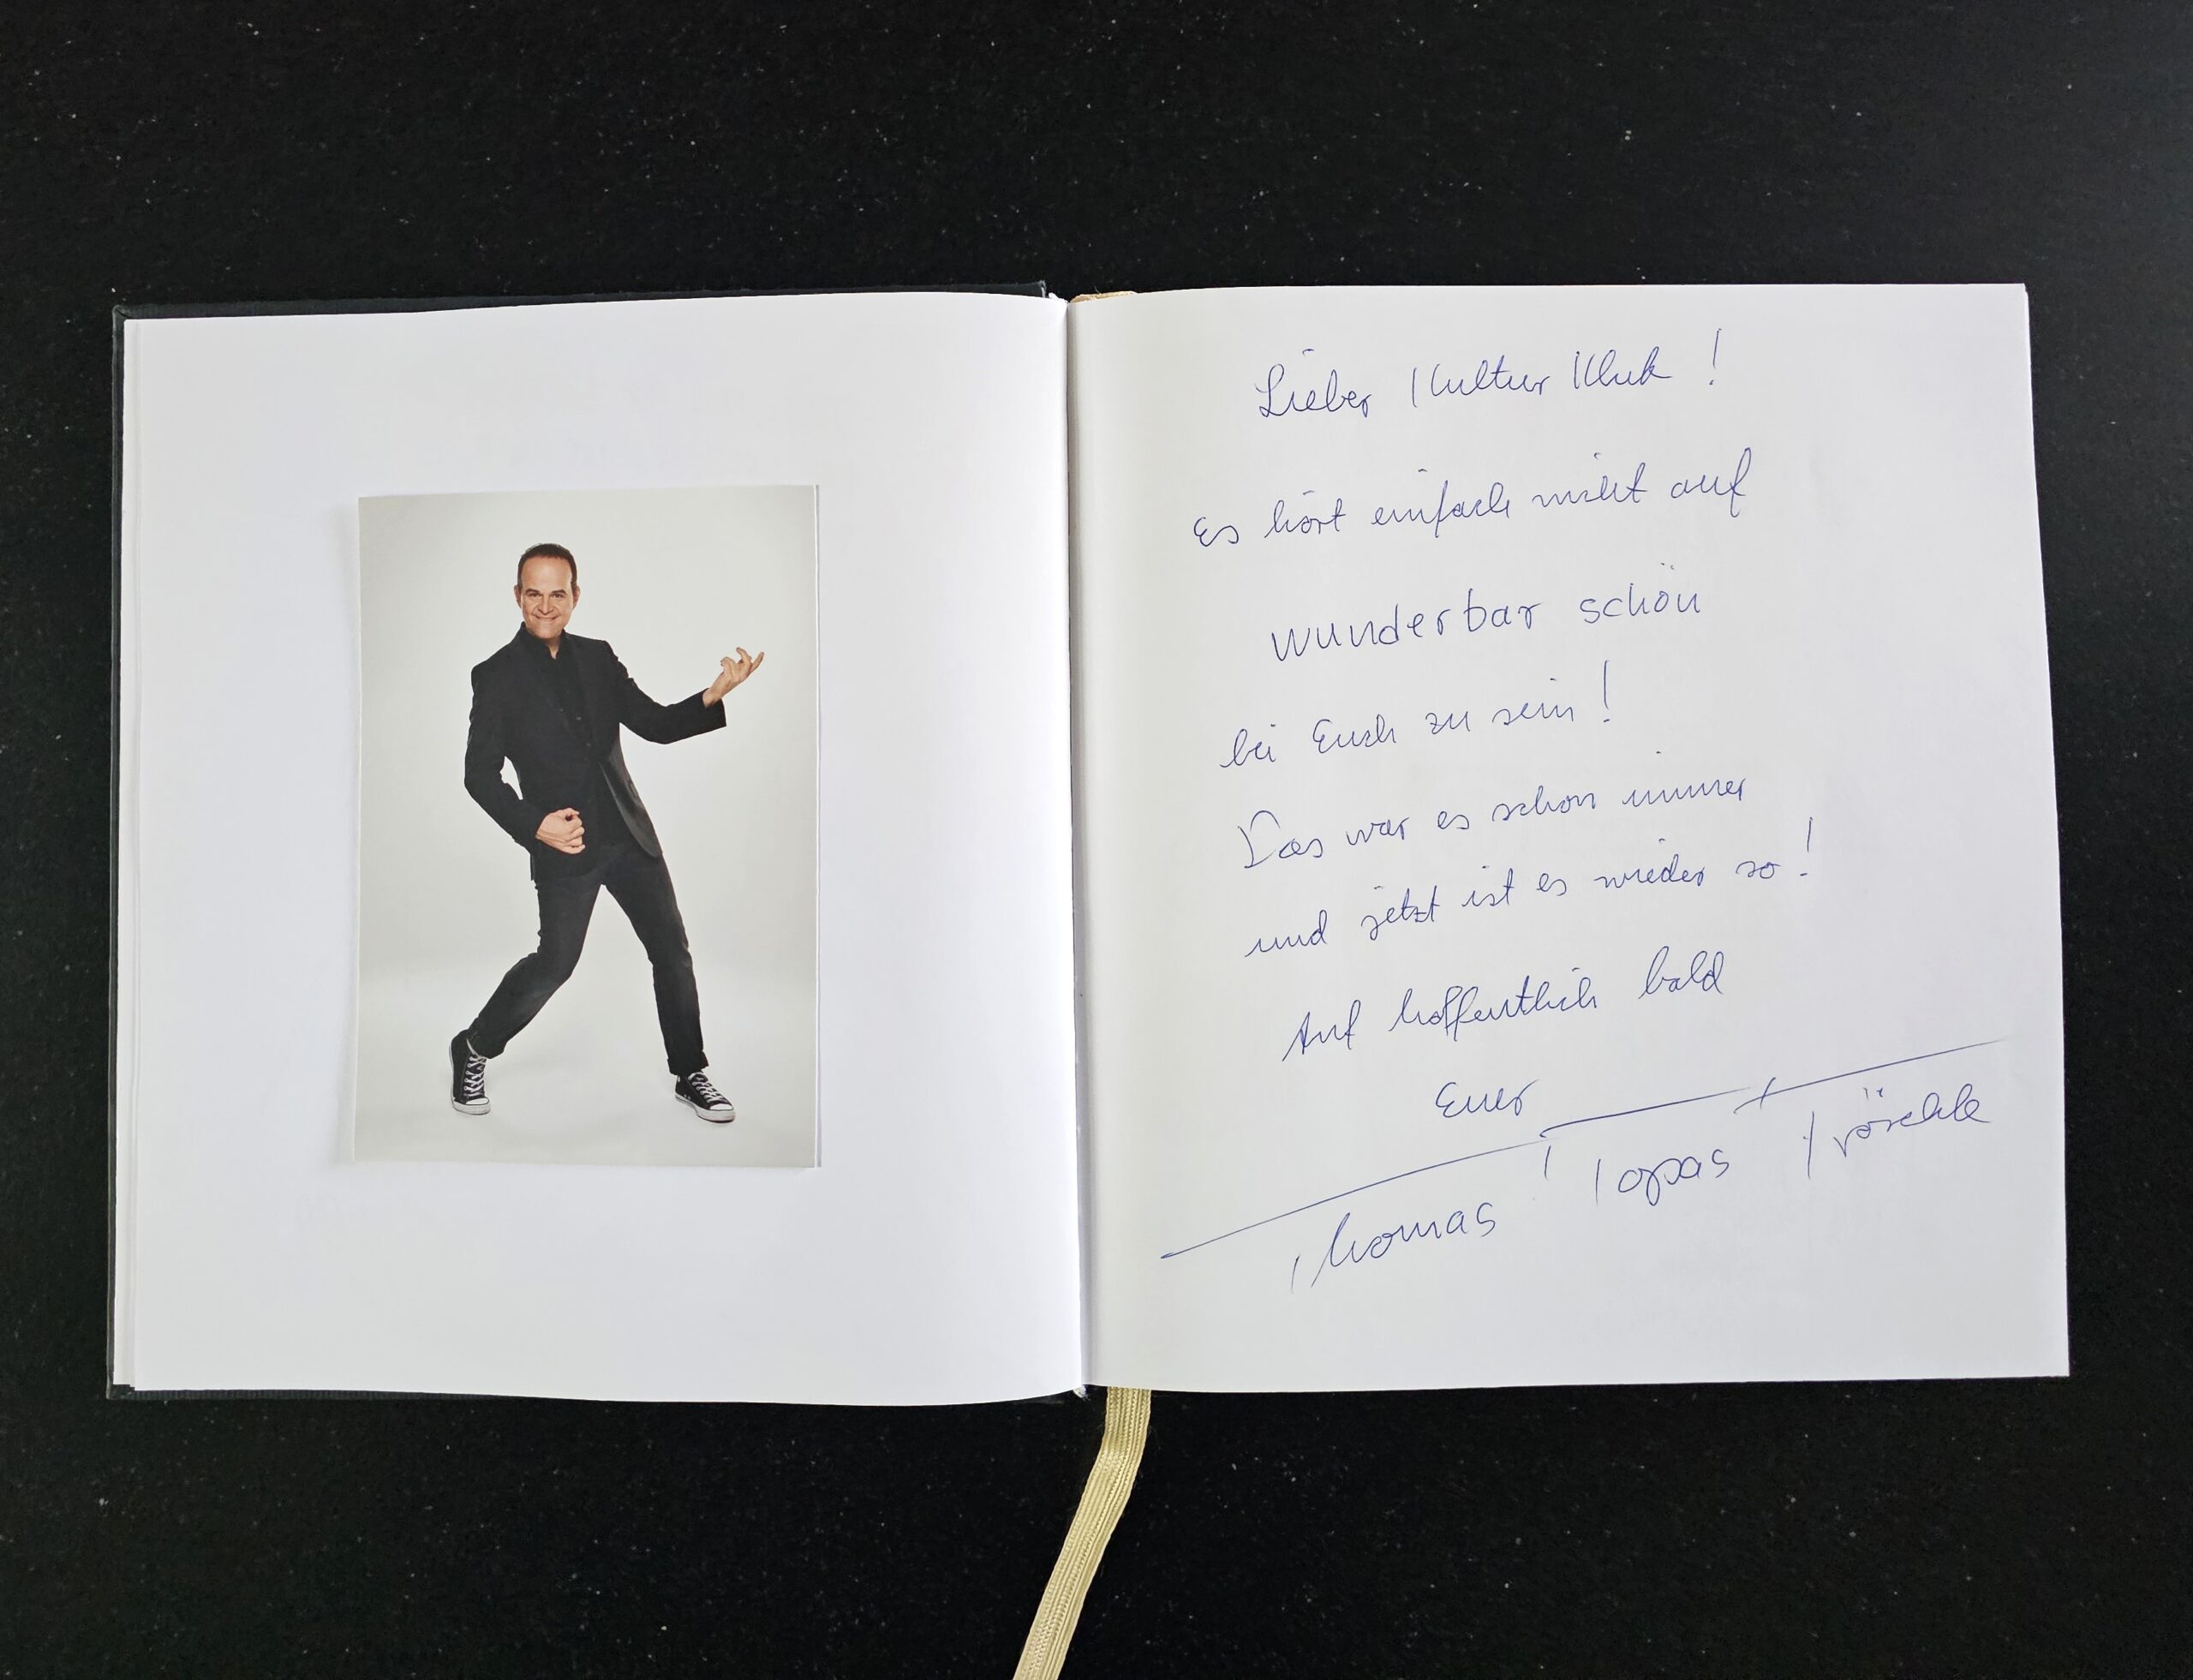 Lieber Kultur Klub !
Es hört einfach nicht auf
wunderbar schön
bei Euch zu sein !
Das war es schon immer
und jetzt ist es wieder so !
Auf hoffentlich bald
Euer
Thomas Topas Fröschle